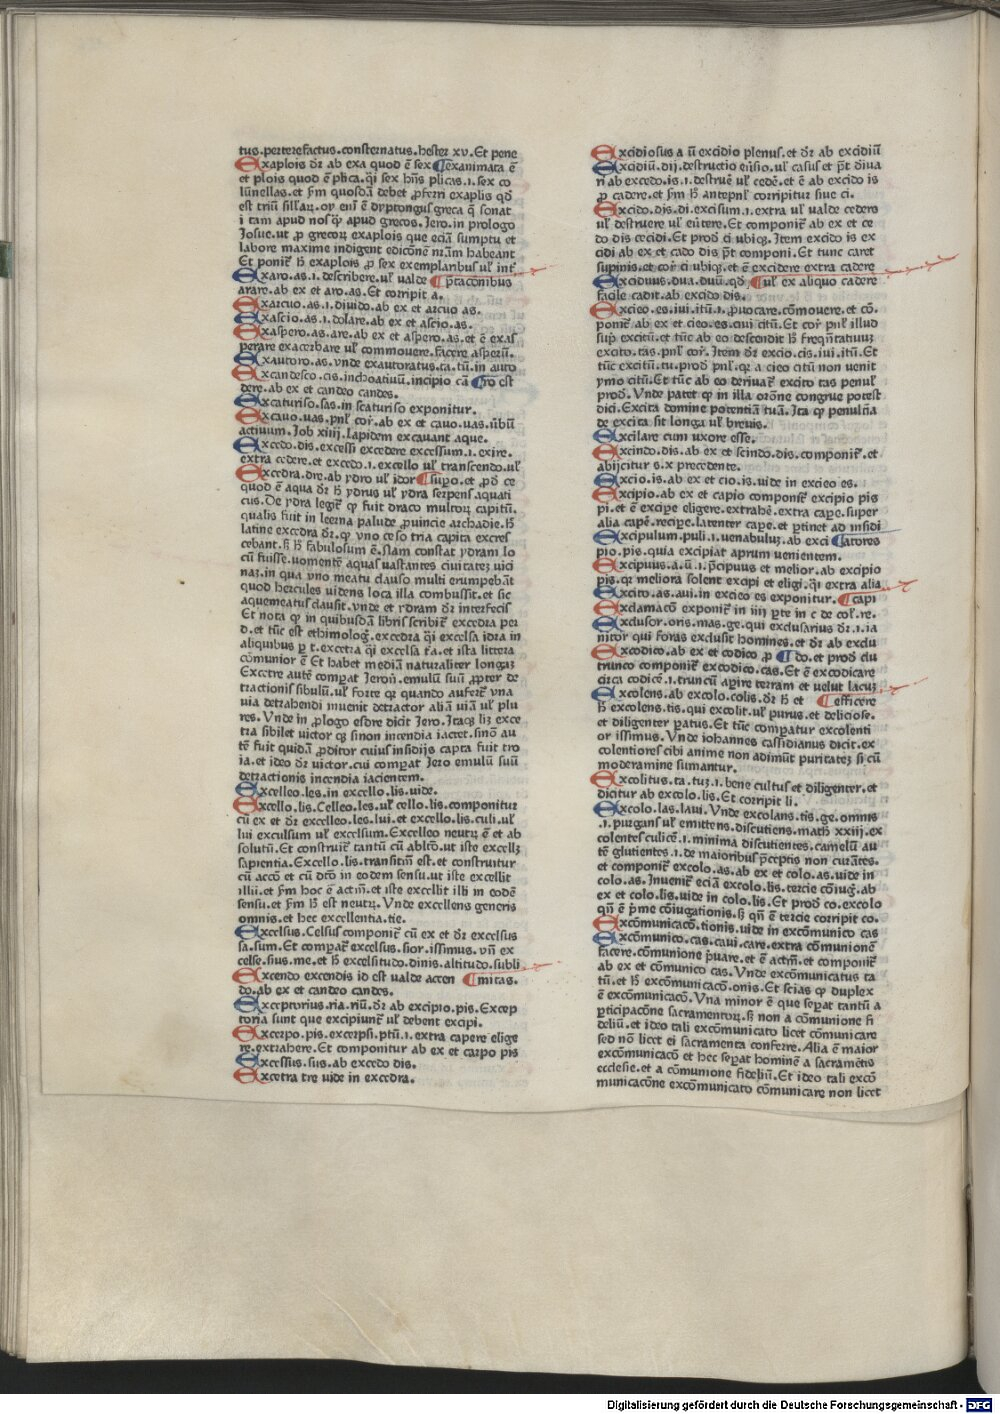 tus.perterrefactus.consternatus.hester xv.Et pene
Exaplois dr̄ ab exa quod ē sex ¶exanimata ē
et plois quod ē plica.q̄i sex hn̄s plicas.i.sex co
lūnellas.et ẜm quosdā debet ꝓferri exaplis qd̄
est triū sillaꝝ.oy eni ē dyptongus greca q̄ sonat
i tam apud nos q̄ꝫ apud grecos.Jero.in prologo
Josue.ut ꝓ grecoꝝ exaplois que eciā sumptu et
labore maxime indigent edicōnē nr̄am habeant
Et poniť h̄ exaplois ꝓ sex exemplaribus ul̄ int̄
Exaro.as.i.describere.ul̄ valde ¶p̄taconibus
arare.ab ex et aro.as.Et corripit a.
Exarcuo.as.i.diuido.ab ex et arcuo as.
Exascio.as.i.dolare.ab ex et ascio.as.
Exaspero.as.are.ab ex et aspero.as.et ē exas
perare exacerbare ul̄ commouere.facere asperū.
Exautoro.as.vnde exautoratus.ta.tū.in auto
Excandesco.cis.inchoatiuū.incipio cā ¶ro est
dere.ab ex et candeo candes.
Excaturiso.sas.in scaturiso exponitur.
Excauo.uas.pnl̄ cor̄.ab ex et cauo.uas.ūbū
actiuum.Job xiiij.Lapidem excauant aque.
Excedo.dis.excessi excedere excessum.i.exire.
extra cedere.et excedo.i.excello ul̄ transcendo.ul̄
Excedra.dre.ab ydro ul̄ idor ¶supo.et ꝓd ce
quod ē aqua dr̄ h̄ ydrus ul̄ ydra serpens aquati
cus.De ydra legiť ꝙ fuit draco multoꝝ capitū.
qualis fuit in leerna palude ꝓuincie archadie.h̄
latine excedra dr̄.ꝙ vno ceso tria capita excres
cebant.ẜ h̄ fabulosum ē.Nam constat ydram lo
cū fuisse.uomentē aquas vastantes ciuitateꝫ uici
naꝫ.in qua vno meatu clauso multi erumpebāt
quod hercules uidens loca illa combussit.et sic
aquemeatus clausit.vnde et ydram dr̄ interfecis
Et nota ꝙ in quibusdā libris scribiť excedra per
d.et tūc est ethimoloḡ.excedra q̄i excelsa idra in
aliquibus ꝑ t.excetra q̄i excelsa t̄ra.et ista littera
cōmunior ē Et habet mediā naturaliter longaꝫ
Excetre autē compat Jeronī.emulū suū ꝓpter de
tractionis sibulū.ul̄ forte qꝛ quando auferť vna
uia detrahendi inuenit detractor aliā uiā ul̄ plu
res.Vnde in ꝓlogo esdre dicit Jero.Itaqꝫ liꝫ exce
tra sibilet victor qꝫ sinon incendia iactet.sinō au
tē fuit quidā ꝓditor cuius insidijs capta fuit tro
ia.et ideo dr̄ victor.cui compat Jero emulū suū
detractionis incendia iacientem.
Excelleo.les.in excello.lis.uide.
Excello.lis.Celleo.les.ul̄ cello.lis.componitur
cū ex et dr̄ excelleo.les.lui.et excello.lis.culi.ul̄
lui exculsum ul̄ excelsum.Excelleo neutꝝ ē et ab
solutū.Et construiť tantū cū ablt̄o.ut iste excelleꝫ
sapientia.Excello.lis.transitiū est.et construitur
cū acc̄o et cū dt̄o in eodem sensu.ut iste excellit
illū.et ẜm hoc ē actiū.et iste excellit illi in eodē
sensu.et ẜm h̄ est neutꝝ.Vnde excellens generis
omnis.et hec excellentia.tie.
Excelsus.Celsus componiť cū ex et dr̄ excelsus
sa.sum.Et compať excelsus.sior.issimus.vn̄ ex
celse.sius.me.et h̄ excelsitudo.dinis.altitudo.subli
Excendo excendis id est valde accen ¶mitas.
do.ab ex et candeo candes.
Exceptorius.ria.riū.dr̄ ab excipio.pis.Excep
toria sunt que excipiunť ul̄ debent excipi.
Excerpo.pis.excerpsi.ptū.i.extra capere elige
re.extrahere.Et componitur ab ex et carpo pis
Excessus.sus.ab excedo dis.
Excetra tre vide in excedra.
Excidiosus a ū excidio plenus.et dr̄ ab excidiū
Excidiū.dij.destructio eūsio.ul̄ casus et pn̄t diua
ri ab excedo.is.i.destruē ul̄ cedē.et ē ab excido is
ꝓ cadere.et ẜm h̄ antepnl̄ corripitur siue ci.
Excido.dis.di.excisum.i.extra ul̄ valde cedere
ul̄ destruere ul̄ eūtere.Et componiť ab ex et ce
do dis cecidi.Et prod̄ ci ubiqꝫ.Item excido is ex
cidi ab ex et cado dis p̄t componi.Et tunc caret
supinis.et cor̄ ci ubiqꝫ.et ē excidere extra cadere
Exciduus.dua.duū.qd̄ ¶ul̄ ex aliquo cadere
facile cadit.ab excido dis.
Excieo.es.iui.itū.i.ꝓuocare.cōmouere.et cō
poniť ab ex et cieo.es.ciui citū.Et cor̄ pnl̄ illud
sup̄ excitū.et tūc ab eo descendit h̄ freqn̄tatiuuꝫ
excito.tas.pnl̄ cor̄.Item dr̄ excio.cis.iui.itū.Et
tūc excitū.tu.prod̄ pnl̄.qꝛ a cieo citū non venit
ymo citū.Et tūc ab eo deriuať excito tas penul̄
prod̄.Vnde patet ꝙ in illa orōne congrue potest
dici.Excita domine potentiā tuā.Ita ꝙ penul̄ma
de excita sit longa ul̄ breuis.
Excilare cum vxore esse.
Excindo.dis.ab ex et scindo.dis.componiť.et
abijcitur s.x precedente.
Excio.is.ab ex et cio.is.uide in excieo es.
Excipio.ab ex et capio componiť excipio pis
pi.et ē excipe eligere.extrahē.extra cape.super
alia capē.recipe.latenter cape.et ꝑtinet ad insidi
Excipulum.puli.i.uenabuluꝫ.ab exci ¶atores
pio.pis.quia excipiat aprum uenientem.
Excipuus.a.ū.i.p̄cipuus et melior.ab excipio
pis.qꝛ meliora solent excipi et eligi.q̄i extra alia
Excito.as.aui.in excieo es exponitur. ¶capi
Exclamacō exponiť in iiij ꝑte in c de col̄.re.
Exclusor.oris.mas.ge.qui exclusarius dr̄.i.ia
nitor qui foras exclusit homines.et dr̄ ab exclu
Excodico.ab ex et codico ꝓ ¶do.et prod̄ clu
trunco componiť excodico.cas.Et ē excodicare
circa codicē.i.truncū apire terram et uelut lacuꝫ
Excolens.ab excolo.colis.dr̄ h̄ et ¶efficere
h̄ excolens.tis.qui excolit.ul̄ purus.et deliciose.
et diligenter ꝑatus.Et tūc compatur excolenti
or issimus.Vnde iohannes cassidianus dicit.ex
colentiores cibi anime non adimūt puritateꝫ si cū
moderamine sumantur.
Excolitus.ta.tuꝫ.i.bene cultus et diligenter.et
dicitur ab excolo.lis.Et corripit li.
Excolo.las.laui.Vnde excolans.tis.ge.omnis
.i.purgans ul̄ emittens.discutiens.math̄ xxiij.ex
colentes culicē.i.minima discutientes.camelū au
tē glutientes.i.de maioribus p̄ceptis non curātes.
et componiť excolo.as.ab ex et colo.as.uide in
colo.as.Inueniť eciā excolo.lis.tercie cōiuḡ.ab
ex et colo.lis.uide in colo.lis.Et prod̄ co.excolo
qn̄ ē p̄me cōiugationis.ẜ qn̄ ē tercie corripit co.
Excōmunicacō.tionis.uide in excōmunico cas
Excōmunico.cas.caui.care.extra cōmunionē
facere.cōmunione p̄uare.et ē actiū.et componiť
ab ex et cōmunico cas.Vnde excōmunicatus ta
tū.et h̄ excōmunicacō.onis.Et scias ꝙ duplex
ē excōmunicacō.Vna minor ē que sepat tantū a
ꝑticipacōne sacramentoꝝ.ẜ non a cōmunione fi
deliū.et ideo tali excōmunicato licet cōmunicare
sed nō licet ei sacramenta conferre.Alia ē maior
excōmunicacō et hec sepat hominē a sacramētis
ecclesie.et a cōmunione fideliū.Et ideo tali excō
municacōne excōmunicato cōmunicare non licet
Digitalisierung gefördert durch die Deutsche Forschungsgemeinschaft - DFG